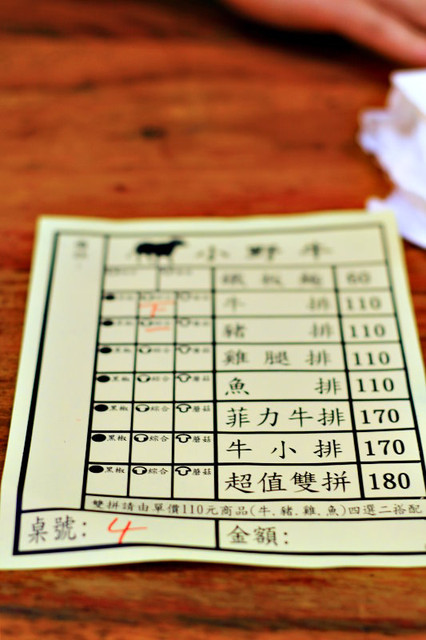 小野牛
鐵板麵 60
牛排 110
豬排 110
黑椒 綜合 蘑菇 雞腿排 110
黑椒 綜合 蘑菇 魚排 110
黑椒 綜合 蘑菇 菲力牛排 170
黑椒 綜合 蘑菇 牛小排 170
黑椒 綜合 蘑菇 超值雙拼 180
雙拼請由單價110元商品(牛.豬.雞.魚)四選二搭配
桌號: 4 金額: